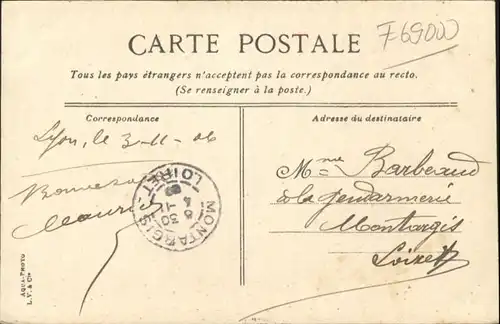 F69000
CARTE POSTALE
Tous les pays étrangers n'acceptent pas la correspondance au recto.
(Se renseigner à la poste.)
Correspondance
Adresse du destinataire
Lyon, le 3-11-06
Maurice
Mme Barbeaud
à la gendarmerie
Montargis
Loiret
MONTARGIS
LOIRET
AQUA-PHOTO
L.V. & Cie